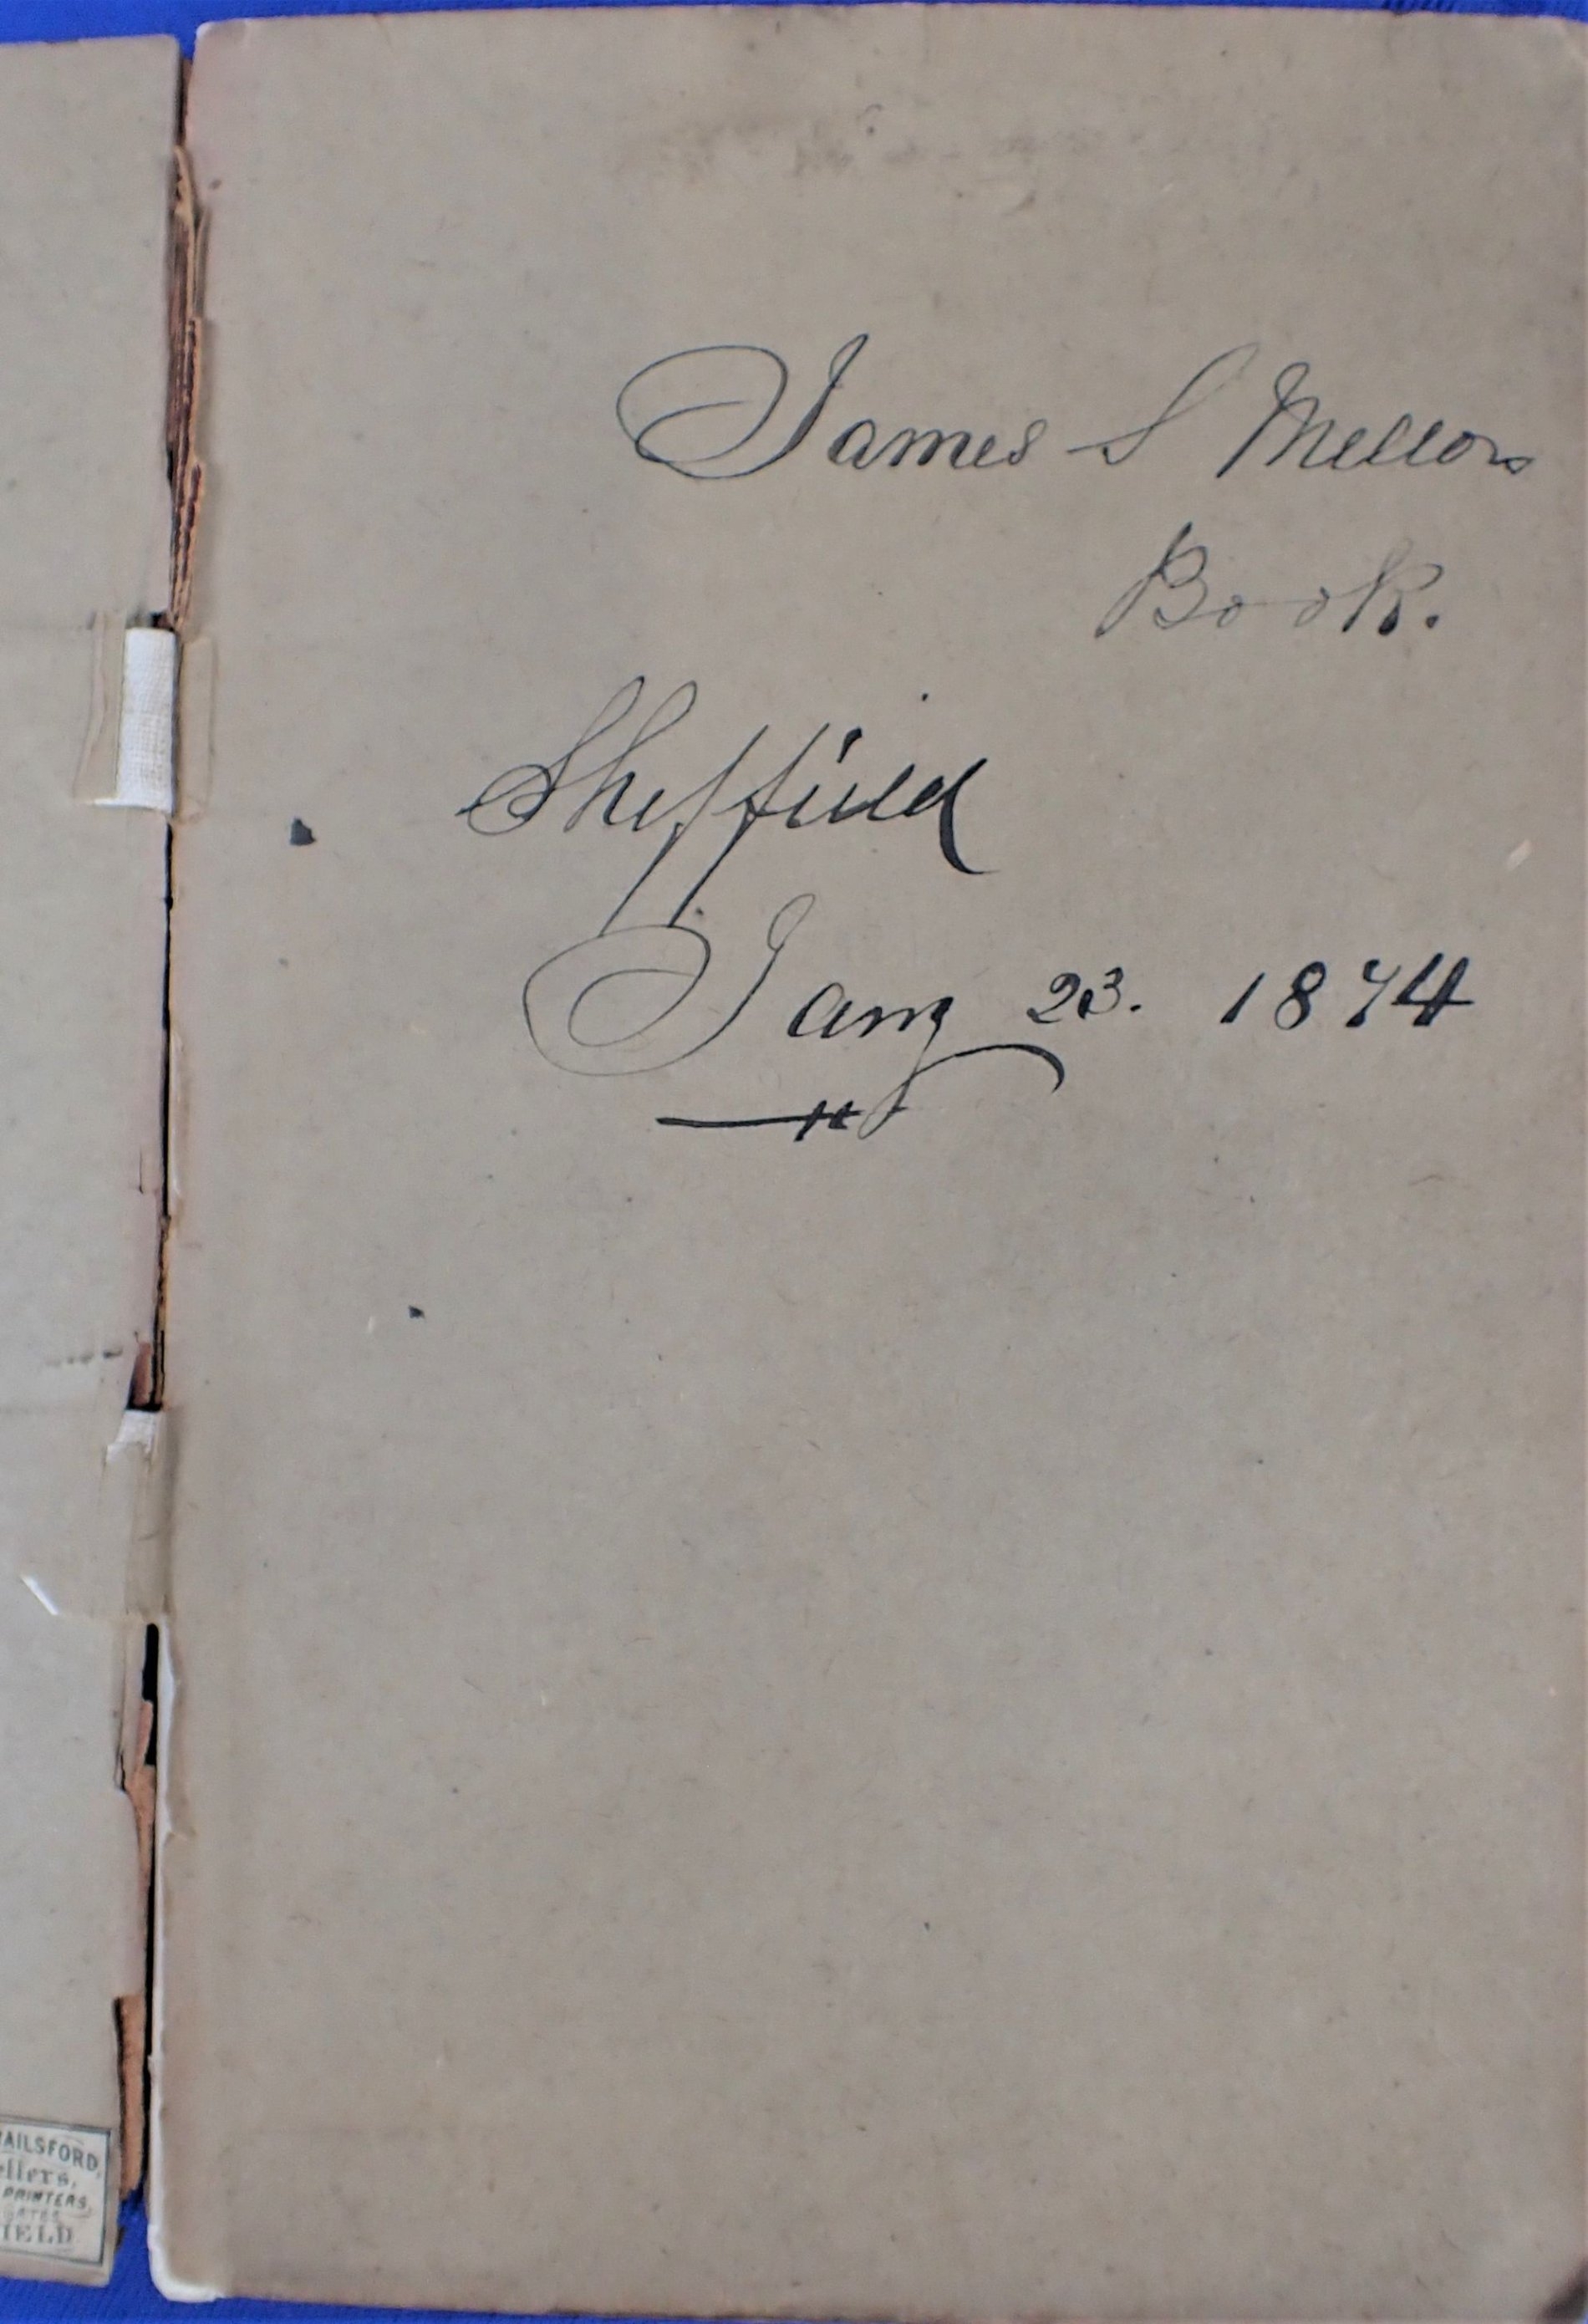 James S Mellors
Book.
Sheffield
Jany 23. 1874
AILSFORD,
ellers,
PRINTERS,
GATES
IELD